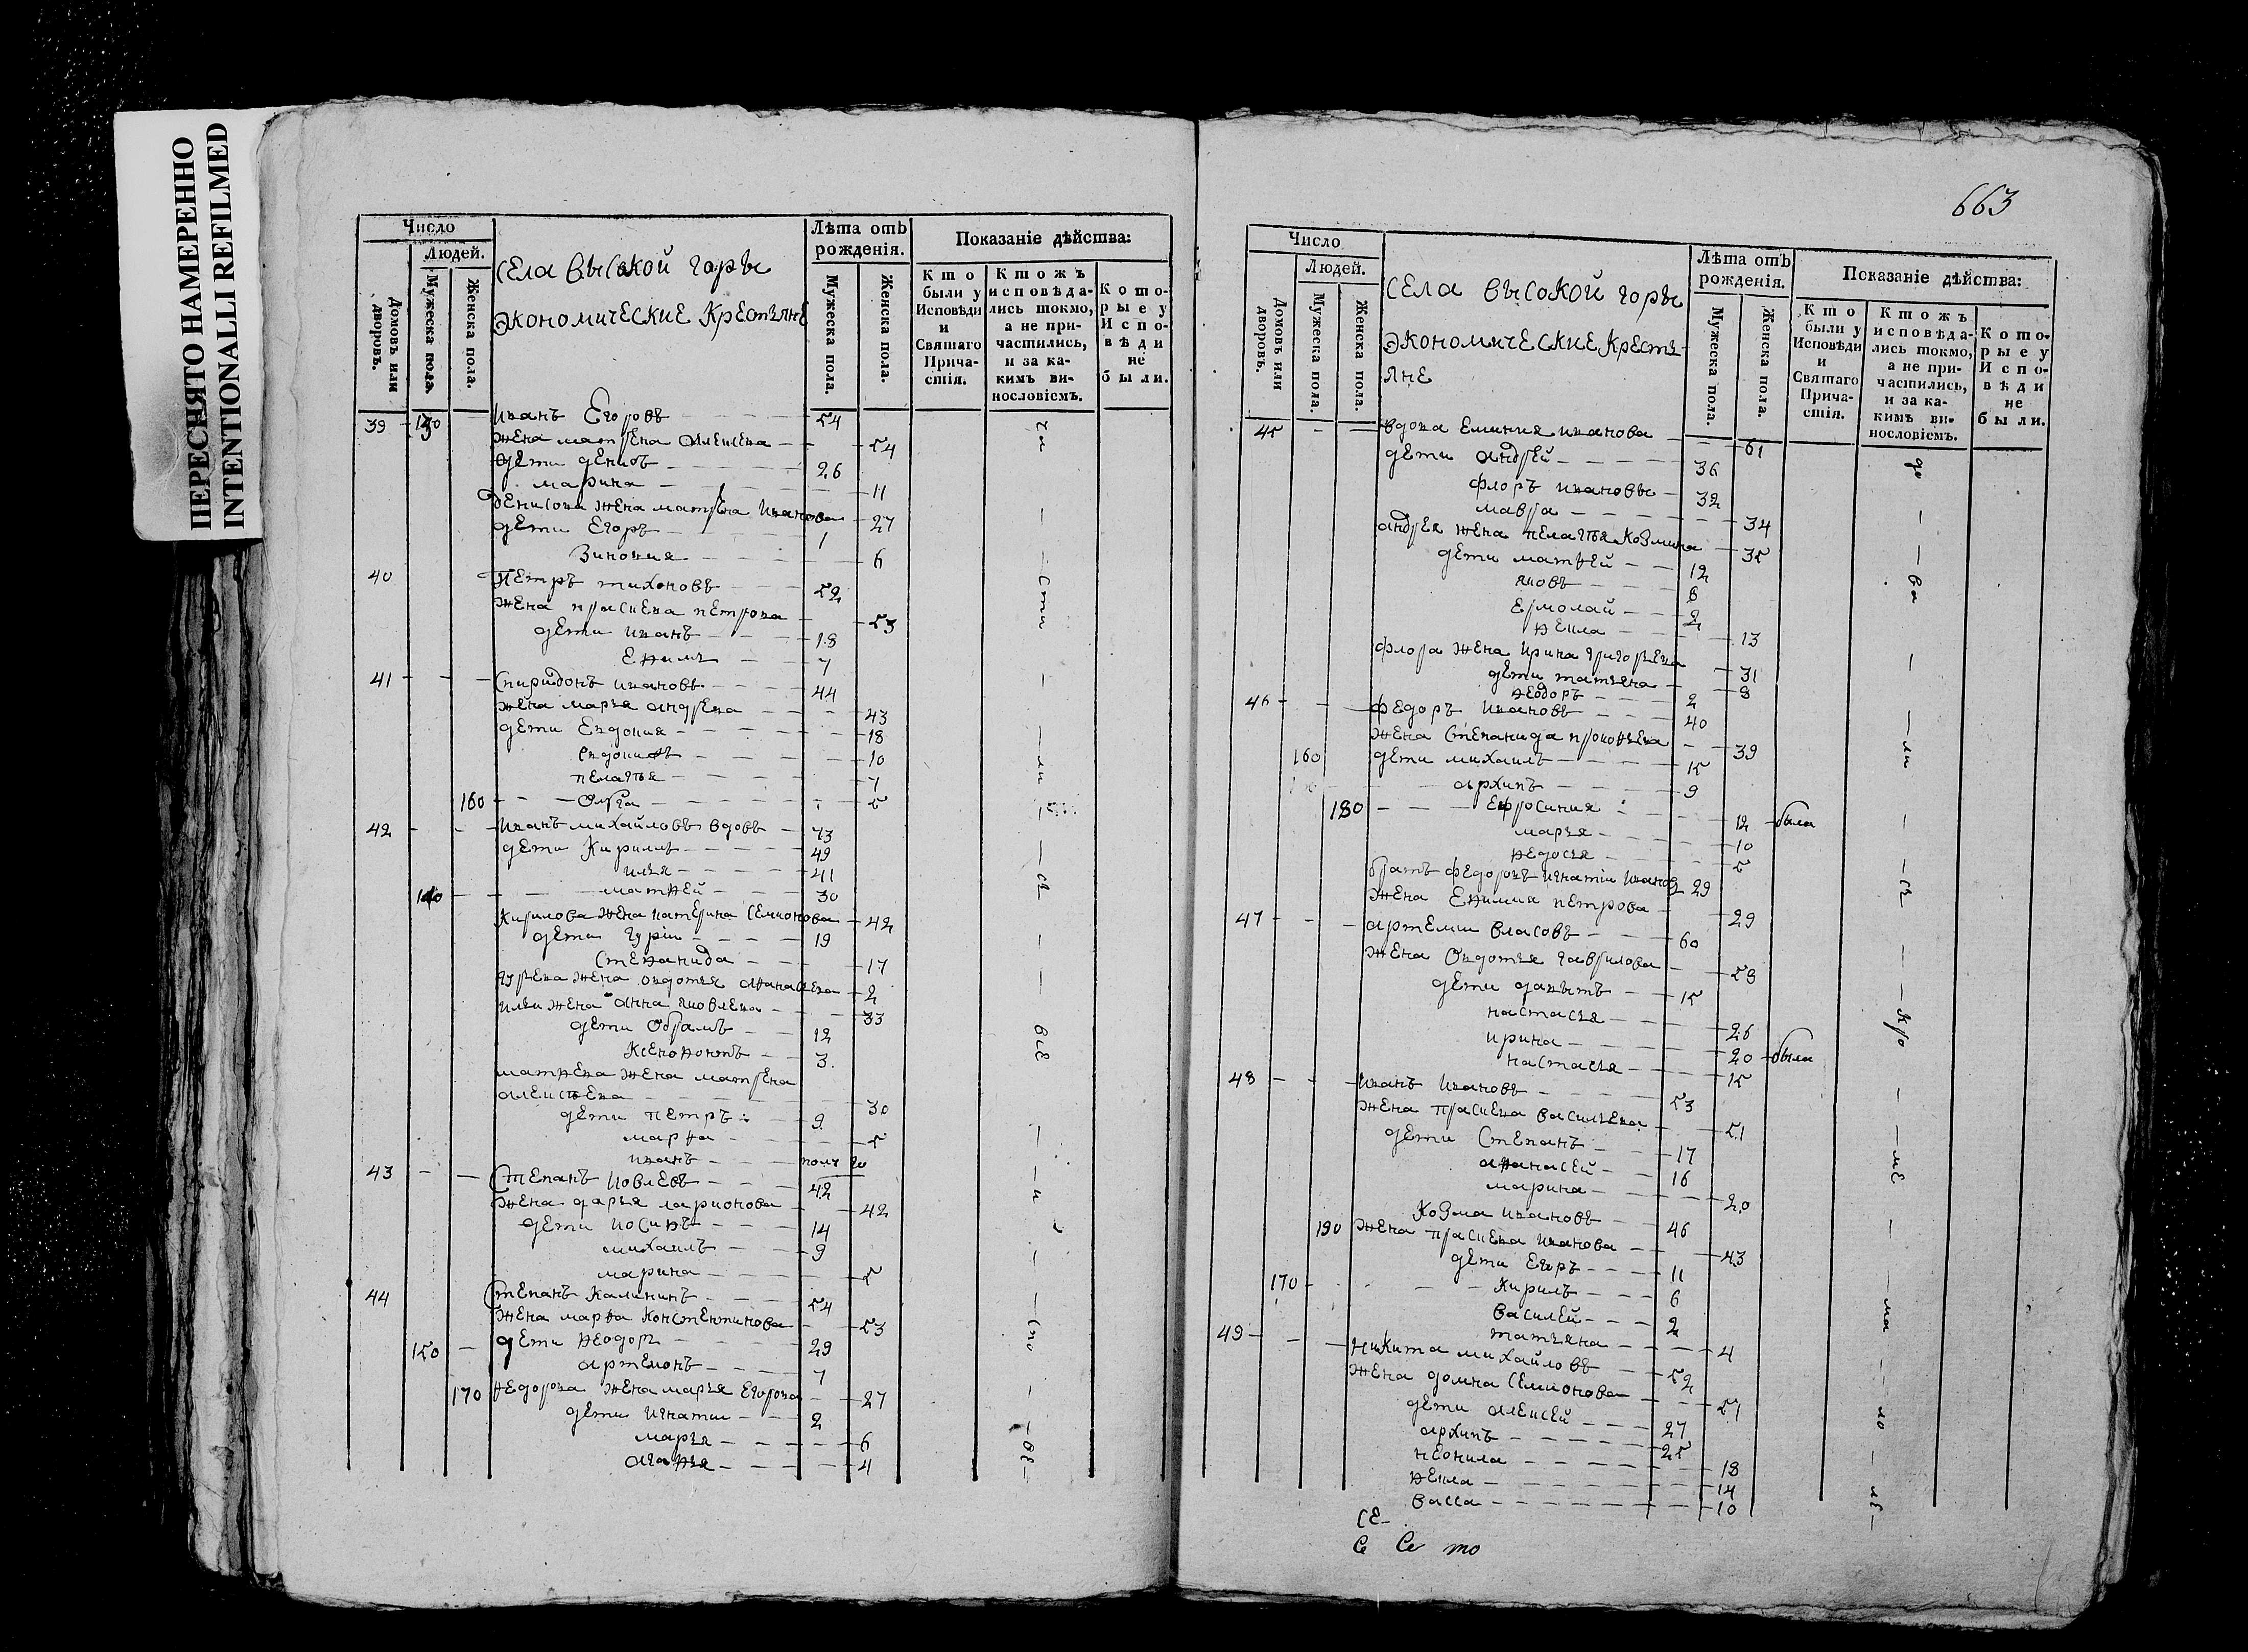 ПЕРЕСНЯТО НАМЕРЕННО
INTENTIONALLI REFILMED
Число
Людей.
Домовъ или дворовъ.
Мужеска пола.
Женска пола.
Села высокой горы
Экономическиe Крестьяне
Лѣта отъ рожденія.
Мужеска пола.
Женска пола.
Показаніе дѣйства:
Кто были у Исповѣди и Святаго Причастія.
Ктожъ исповѣдались токмо, а не причастились, и за какимъ винословіемъ.
Которые у Исповѣди не были.
39 Иванъ Егоровъ 54
жена матрена 54
дети денисъ 26
марина 11
денисова жена матрена Иванова 27
дети Егоръ 1
Зиновия 6
40 Петръ тихоновъ 52
жена прасковa петрова 53
дети иванъ 18
Ефимъ 7
41 Спиридонъ ивановъ 44
жена марья андреева 43
дети Евдокия 18
10
пелагея 7
160 Олга 5
42 Иванъ михайловъ вдовъ 73
дети Кирилъ 49
илья 41
140 матѳей 30
Кирилова жена катерина Семионова 42
дети гурiи 19
Степанида 17
гурьева жена овдотья 2
ильи жена анна яковлева 33
дети Обрамъ 12
Ксенофонтъ 3
матѳева жена матрена
алексѣева 30
дети петръ 9
марѳа 5
иванъ полу го
43 Степанъ иовлевъ 42
жена дарья ларионова 42
дети иосифъ 14
михаилъ 9
марина 5
44 Степанъ Калининъ 54
жена марѳа Констентинова 53
дети ѳеодоръ 29
150 артемонъ 7
170 ѳедорова жена марья Егорова 27
дети игнатии 2
марья 6
агафья 4
663
Число
Людей.
Домовъ или дворовъ.
Мужеска пола.
Женска пола.
Села высокой горы
Экономическиe Кресть-
яне
Лѣта отъ рожденія.
Мужеска пола.
Женска пола.
Показаніе дѣйства:
Кто были у Исповѣди и Святаго Причастія.
Ктожъ исповѣдались токмо, а не причастились, и за какимъ винословіемъ.
Которые у Исповѣди не были.
45 вдова иванова 61
дети андрей 36
флоръ ивановы 32
мавра 34
андрея жена пелагея Козмина 35
дети матѳей 12
яковъ 6
Ермолай 2
ѳекла 13
флора жена ирина григорьева 31
дети татьяна 8
ѳеодоръ 2
46 федоръ ивановъ 40
жена Степанида прокофьева 39
160 дети михаилъ 15
архипъ 9
180 Ефросиния 12 была
марья 10
ѳедосья 5
братъ федоровъ игнатiи иванов 29
жена Ефимия петрова 29
47 артемии власовъ 60
жена Овдотья гаврилова 58
дети давытъ 15
настасья 26
ирина 20 была
настасья 15
48 иванъ ивановъ 53
жена васильева 51
дети Степанъ 17
аѳанасей 16
марина 20
Козма ивановъ 46
190 жена иванова 43
дети Егоръ 11
170 Кирилъ 6
василей 2
татьяна 4
49 никита михайловъ 52
жена домна Семионова 51
дети алексей 27
архипъ 25
неонила 18
ѳекла 14
васса 10
Се-
Се Се то